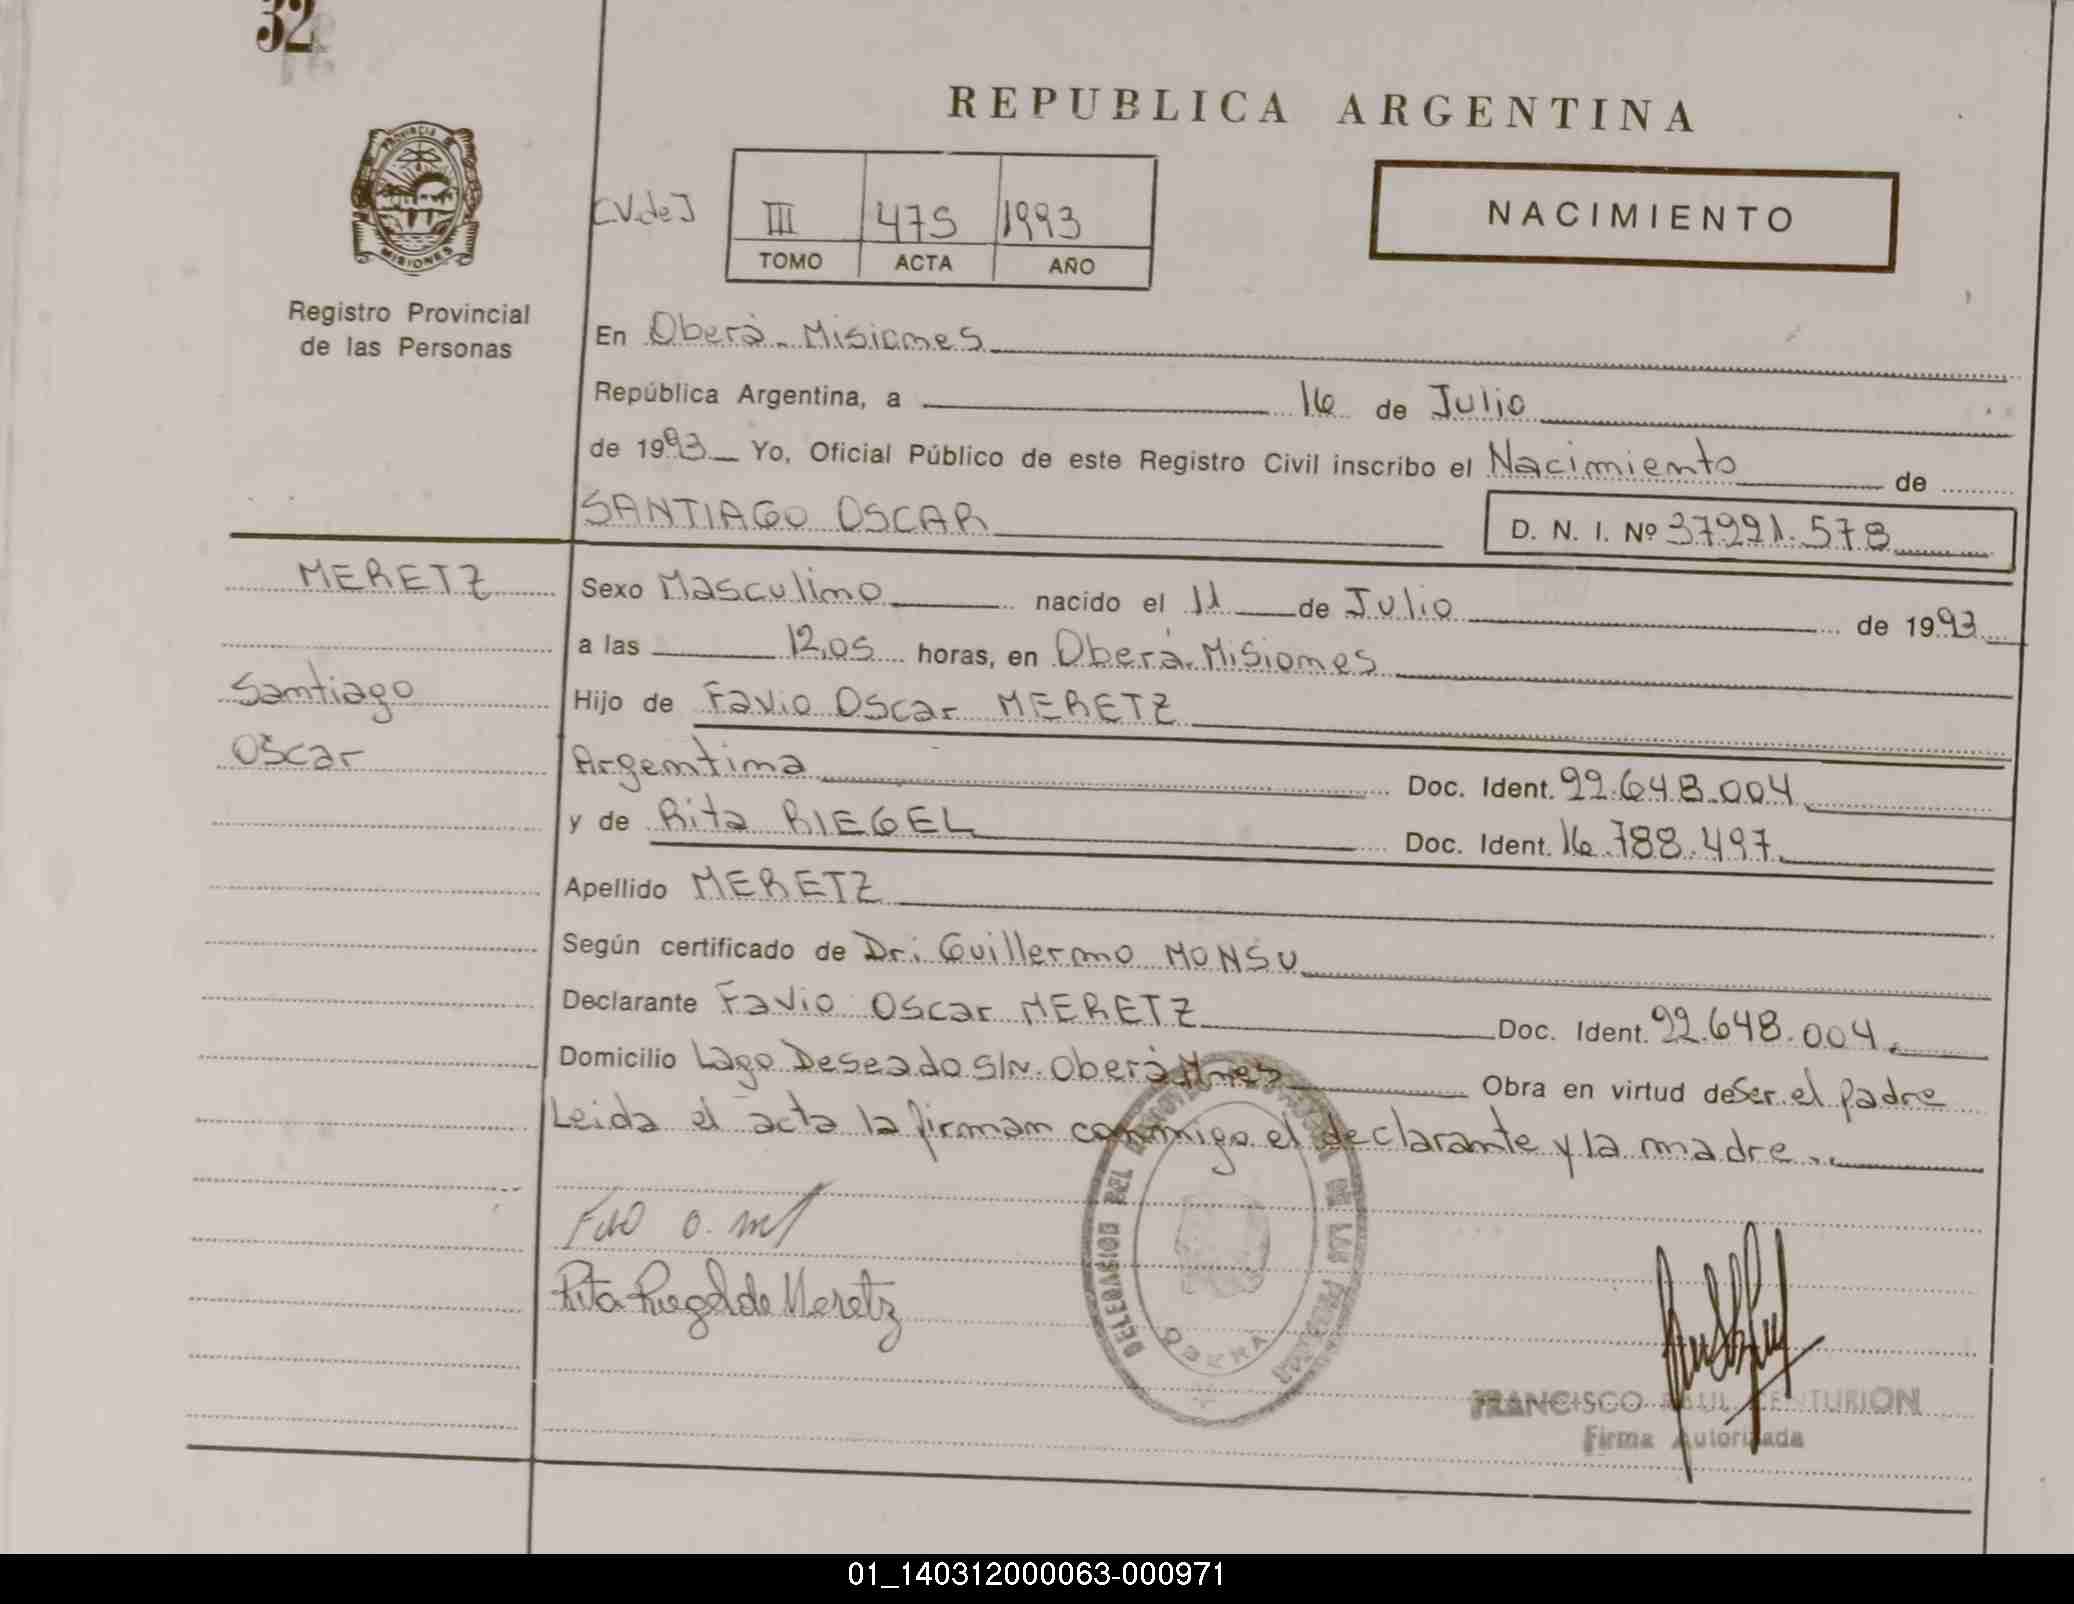 32
REPUBLICA ARGENTINA
PROVINCIA DE
MISIONES
[V.de]
III 475 1993
TOMO ACTA AÑO
NACIMIENTO
Registro Provincial
de las Personas
En Oberá - Misiones
República Argentina, a 16 de Julio
de 1993 Yo, Oficial Público de este Registro Civil inscribo el Nacimiento de
SANTIAGO OSCAR D. N. I. Nº 37991.578
MERETZ
Santiago
Oscar
Sexo Masculino nacido el 11 de Julio de 1993
a las 12,05 horas, en Oberá. Misiones
Hijo de Favio Oscar MERETZ
Argentina Doc. Ident. 22.648.004
y de Rita RIEGEL Doc. Ident. 16.788.497
Apellido MERETZ
Según certificado de Dr: Guillermo MONSU
Declarante Favio Oscar MERETZ Doc. Ident. 22.648.004
Domicilio Lago Deseado S/N. Oberá Mnes Obra en virtud de Ser el padre
Leida el acta la firman conmigo el declarante y la madre.
Rita Riegel de Meretz
DELEGACION DEL REGISTRO PROVINCIAL DE LAS PERSONAS
OBERA
FRANCISCO RAUL CENTURION
Firma Autorizada
01_140312000063-000971